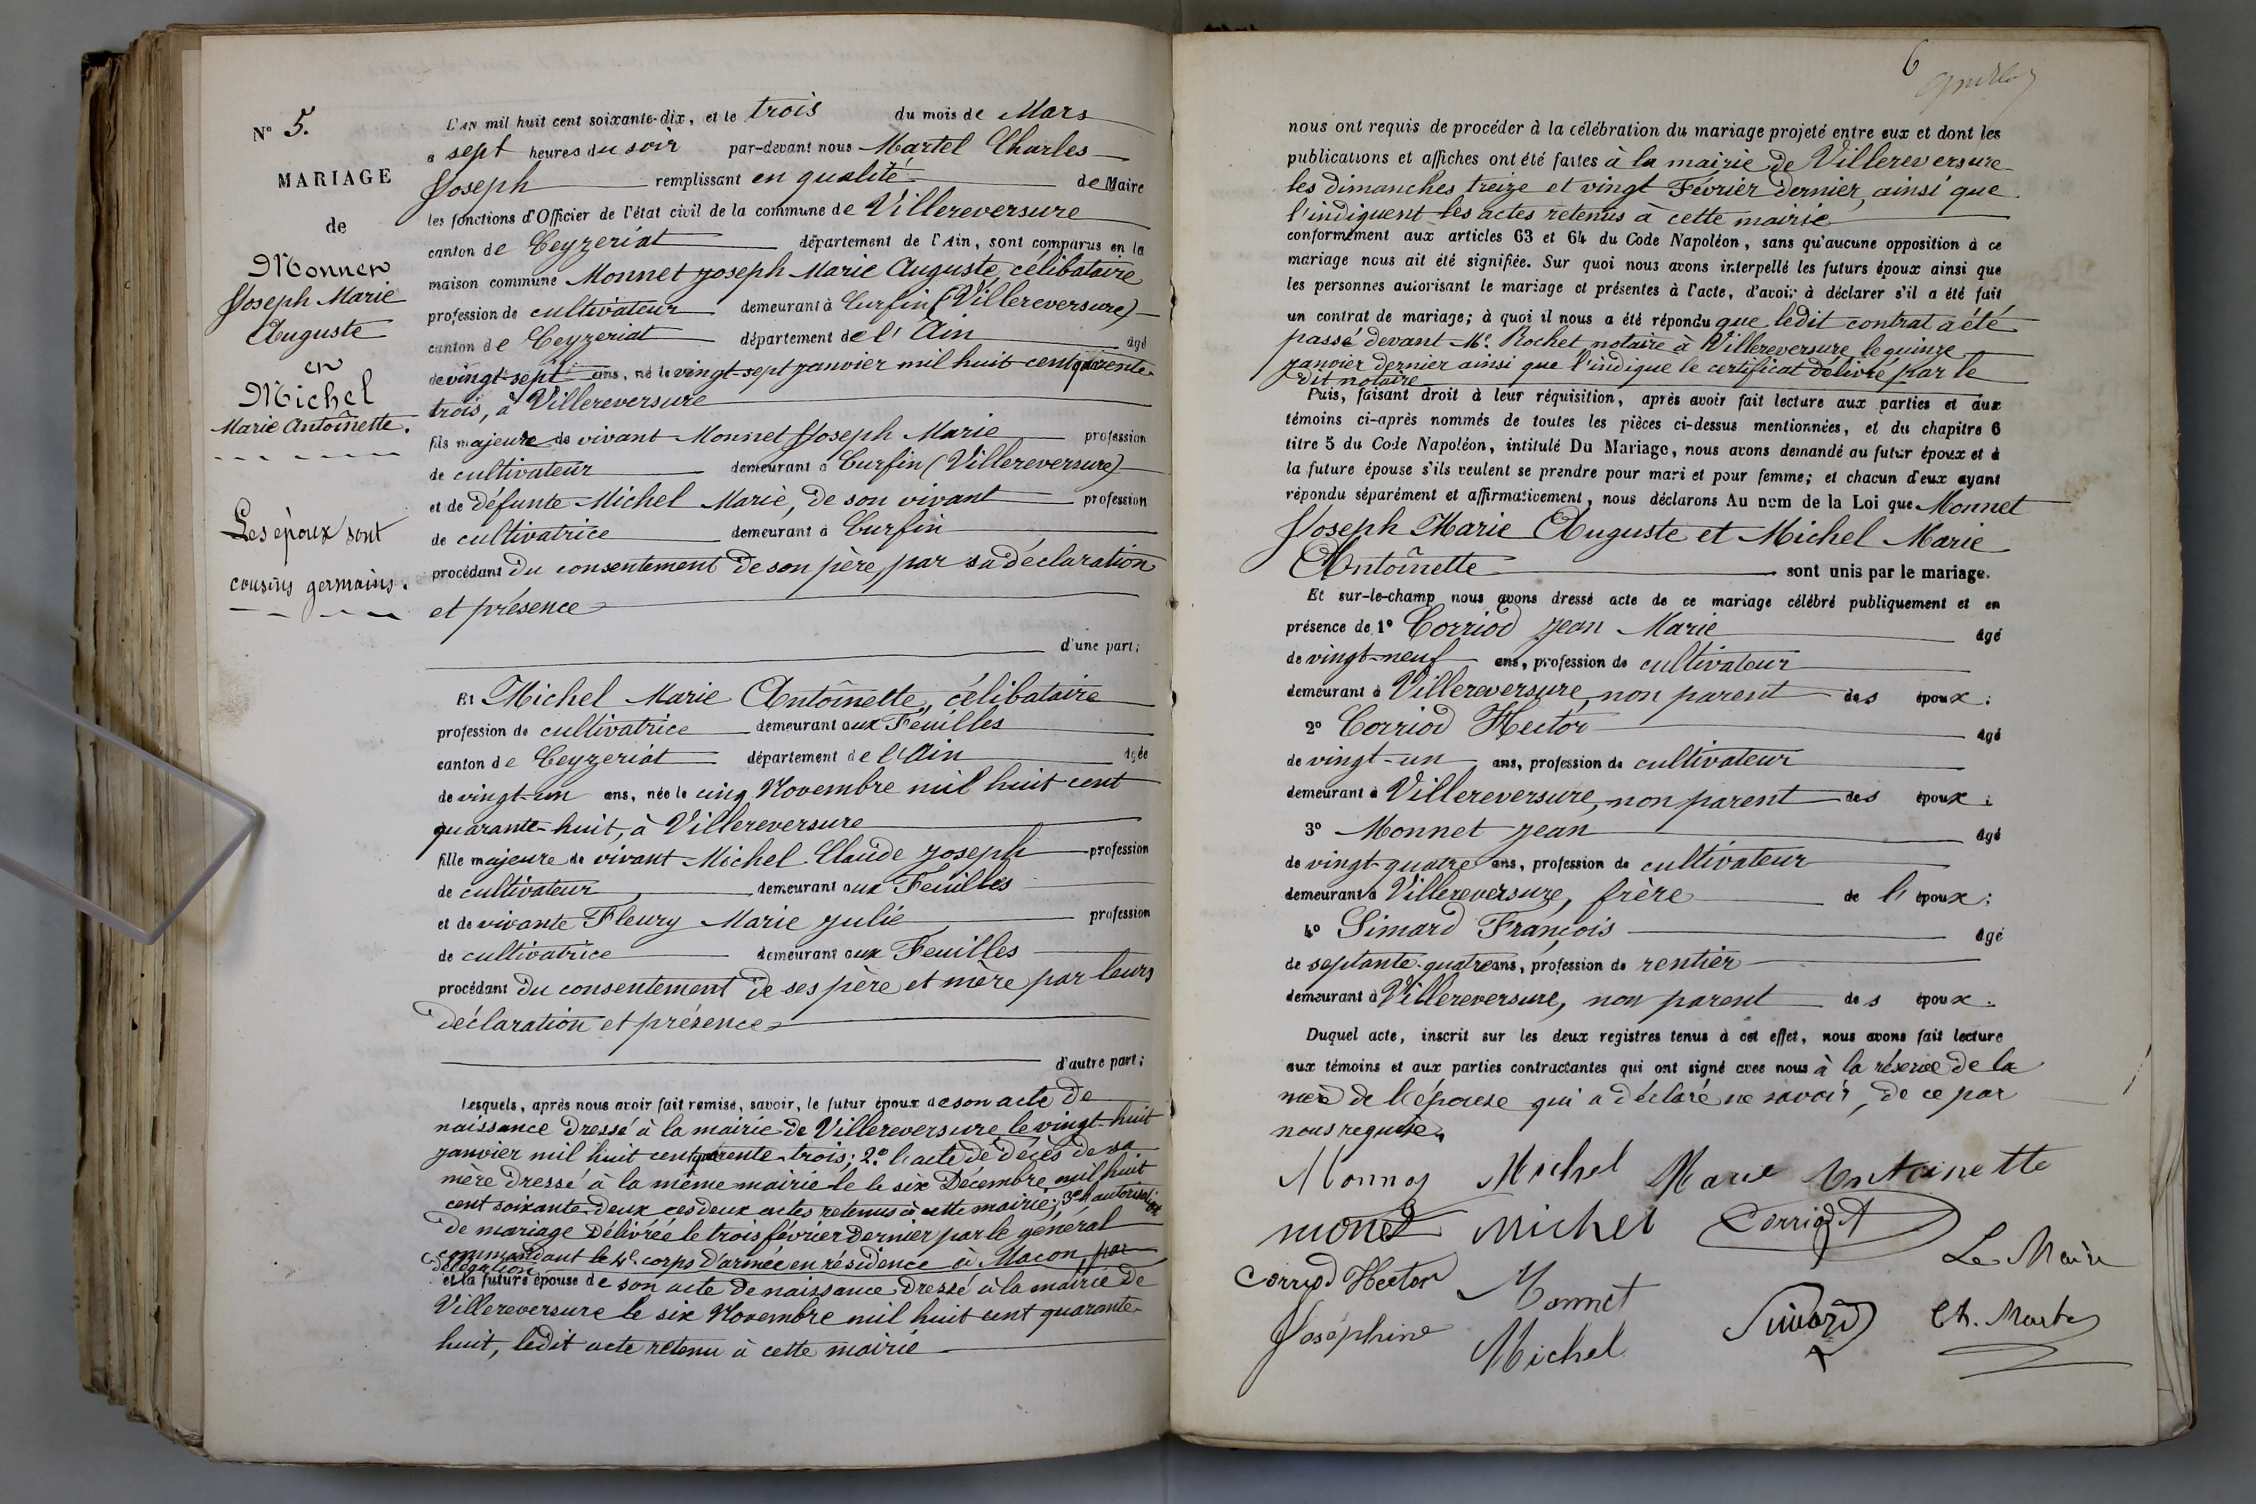 N° 5.
MARIAGE
de
Monnet
Joseph Marie
Auguste
et
Michel
Marie Antoînette.
Les époux sont
cousins germains.
L'AN mil huit cent soixante-dix, et le trois du mois de Mars
a sept heures du soir par-devant nous Martel Charles
Joseph remplissant en qualité de Maire
les fonctions d'Officier de l'état civil de la commune de Villereversure
canton de Ceyzeriat département de l'Ain, sont comparus en la
maison commune Monnet Joseph Marie Auguste, célibataire
profession de cultivateur demeurant à Curfin (Villereversure)
canton de Ceyzeriat département de l'Ain âgé
de vingt-sept ans, né le vingt-sept janvier mil huit cent quarante-
trois, à Villereversure
fils majeur de vivant Monnet Joseph Marie profession
de cultivateur demeurant à Curfin (Villereversure)
et de défunte Michel Marie, de son vivant profession
de cultivatrice demeurant à Curfin
procédant du consentement de son père, par sa déclaration
et présence
d'une part;
Et Michel Marie Antoînette, célibataire
profession de cultivatrice demeurant aux Feuilles
canton de Ceyzeriat département de l'Ain âgée
de vingt-un ans, née le cinq Novembre mil huit cent
quarante-huit, à Villereversure
fille majeure de vivant Michel Claude Joseph profession
de cultivateur demeurant aux Feuilles
et de vivante Fleury Marie Julie profession
de cultivatrice demeurant aux Feuilles
procédant du consentement de ses père et mère par leurs
déclaration et présence
d'autre part;
Lesquels, après nous avoir fait remise, savoir, le futur époux de son acte de
naissance dressé à la mairie de Villereversure le vingt-huit
janvier mil huit cent quarante-trois; 2.° l'acte de décès de sa
mère dressé à la même mairie le le six Décembre mil huit
cent soixante-deux ces deux actes retenus à cette mairie; 3° l'autorisation
de mariage délivrée le trois février dernier par le général
commandant le 4e corps d'armée en résidence à Macon, par
délégation
et la future épouse de son acte de naissance dressé à la mairie de
Villereversure le six Novembre mil huit cent quarante-
huit, ledit acte retenu à cette mairie
6
nous ont requis de procéder à la célébration du mariage projeté entre eux et dont les
publications et affiches ont été faites à la mairie de Villereversure
les dimanches treize et vingt Février dernier, ainsi que
l'indiquent les actes retenus à cette mairie
conformément aux articles 63 et 64 du Code Napoléon, sans qu'aucune opposition à ce
mariage nous ait été signifiée. Sur quoi nous avons interpellé les futurs époux ainsi que
les personnes autorisant le mariage et présentes à l'acte, d'avoir à déclarer s'il a été fait
un contrat de mariage; à quoi il nous a été répondu que ledit contrat a été
passé devant Me. Rochet notaire à Villereversure le quinze
janvier dernier ainsi que l'indique le certificat délivré par le
dit notaire
Puis, faisant droit à leur réquisition, après avoir fait lecture aux parties et aux
témoins ci-après nommés de toutes les pièces ci-dessus mentionnées, et du chapitre 6
titre 5 du Code Napoléon, intitulé Du Mariage, nous avons demandé au futur époux et à
la future épouse s'ils veulent se prendre pour mari et pour femme; et chacun d'eux ayant
répondu séparément et affirmativement, nous déclarons Au nom de la Loi que Monnet
Joseph Marie Auguste et Michel Marie
Antoînette sont unis par le mariage.
Et sur-le-champ nous avons dressé acte de ce mariage célébré publiquement et en
présence de 1° Corriod Jean Marie âgé
de vingt-neuf ans, profession de cultivateur
demeurant à Villereversure, non parent des époux;
2° Corriod Hector âgé
de vingt-un ans, profession de cultivateur
demeurant à Villereversure, non parent des époux;
3° Monnet Jean âgé
de vingt-quatre ans, profession de cultivateur
demeurant à Villereversure, frère de l'époux;
4° Simard François âgé
de septante-quatre ans, profession de rentier
demeurant à Villereversure, non parent des époux.
Duquel acte, inscrit sur les deux registres tenus à cet effet, nous avons fait lecture
aux témoins et aux parties contractantes qui ont signé avec nous à la réserve de la
mère de l'épouse qui a déclaré ne savoir, de ce par
nous requise.
Monnet Michel Marie Antoinette
monet Michel Corriod
Le Maire
Corriod Hector Monnet
Simard Ch. Martel
Joséphine Michel